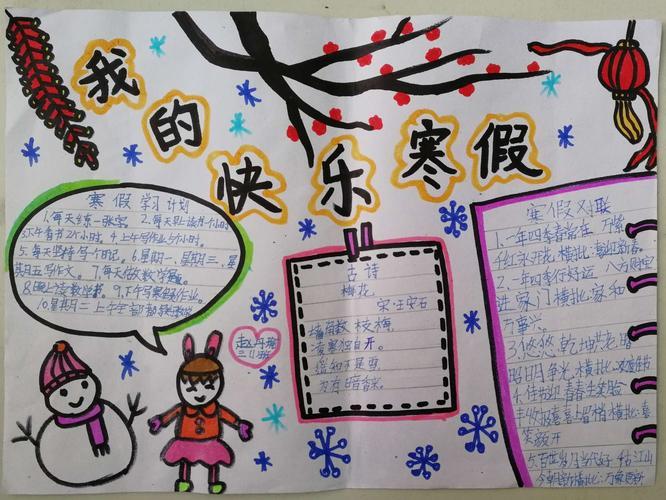 我的快乐寒假
寒假学习计划
1.每天练一张字。2.每天早上读书1个小时
3.下午看书2个小时。4.上午写作业1个小时。
5.每天坚持写一个日记。6.星期一、星期三、星
期五写作文。7.每天做数学题。
8.晚上读数学书。9.下午写寒假作业。
10.星期二上午
古诗
梅花
宋·王安石
墙角数枝梅,
凌寒独自开。
遥知不是雪
为有暗香来。
三、11班
寒假对联
1.一年四季春常在 万紫
千红永开花 横批:喜迎新春
2.一年四季行好运 八方财宝
进家门横批:家和
万事兴。
3.悠悠乾坤共老
昭昭日月争光 横批:欢度佳节
4.佳节迎春春生笑脸
丰收报喜喜上眉梢 横批:喜
笑颜开
5.百世岁月当代好 千古江山
今朝新横批:万象更新